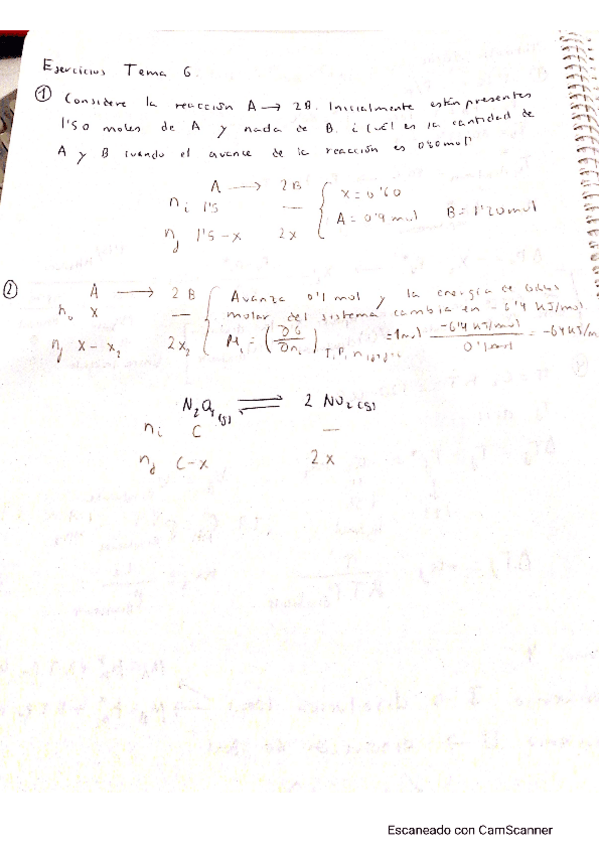 Ejercicios Tema 6.
① Considere la reacción A → 2B. Inicialmente están presentes
1'50 moles de A y nada de B. ¿Cuál es la cantidad de
A y B cuando el avance de la reacción es 0'60 mol
A → 2B
x = 0'60
ni 1'5 —
A = 0'9 mol B = 1'20 mol
nf 1'5-x 2x
② A → 2 B
Avanza 0'1 mol y la energía de Gibbs
n₀ x —
molar del sistema cambia en -6'4 kJ/mol
nf x-x₂ 2x₂
μi = (∂G/∂ni) T,P,n = 1mol -6'4 kJ/mol / 0'1mol = -64 kJ/m
N₂O₄(g) ⇌ 2 NO₂(g)
ni C —
nf C-x 2x
Escaneado con CamScanner